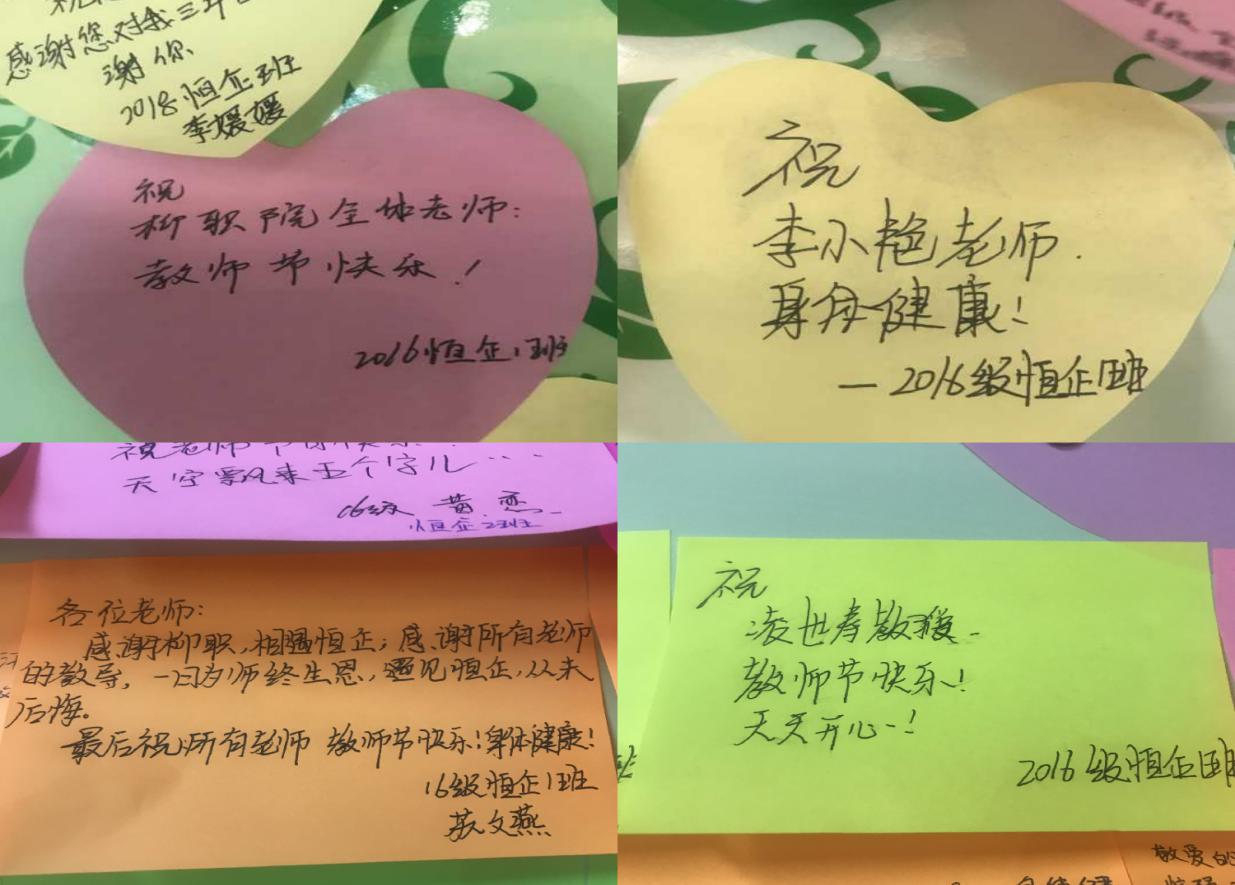 感谢您对我三年
谢你
2018恒企班
李媛媛
祝
柳职院全体老师:
教师节快乐!
2016恒企1班
祝
李小艳老师.
身体健康!
—2016级恒企1班
祝老师节日快乐!
天空飘来五个字儿...
16级 黄恋
恒企2班
各位老师:
感谢柳职,相遇恒企;感谢所有老师
的教导,一日为师终生恩,遇见恒企,从未
后悔。
最后祝所有老师 教师节快乐!身体健康!
16级恒企1班
苏文燕
祝
凌世寿教授
教师节快乐!
天天开心!
2016级恒企1班
敬爱的